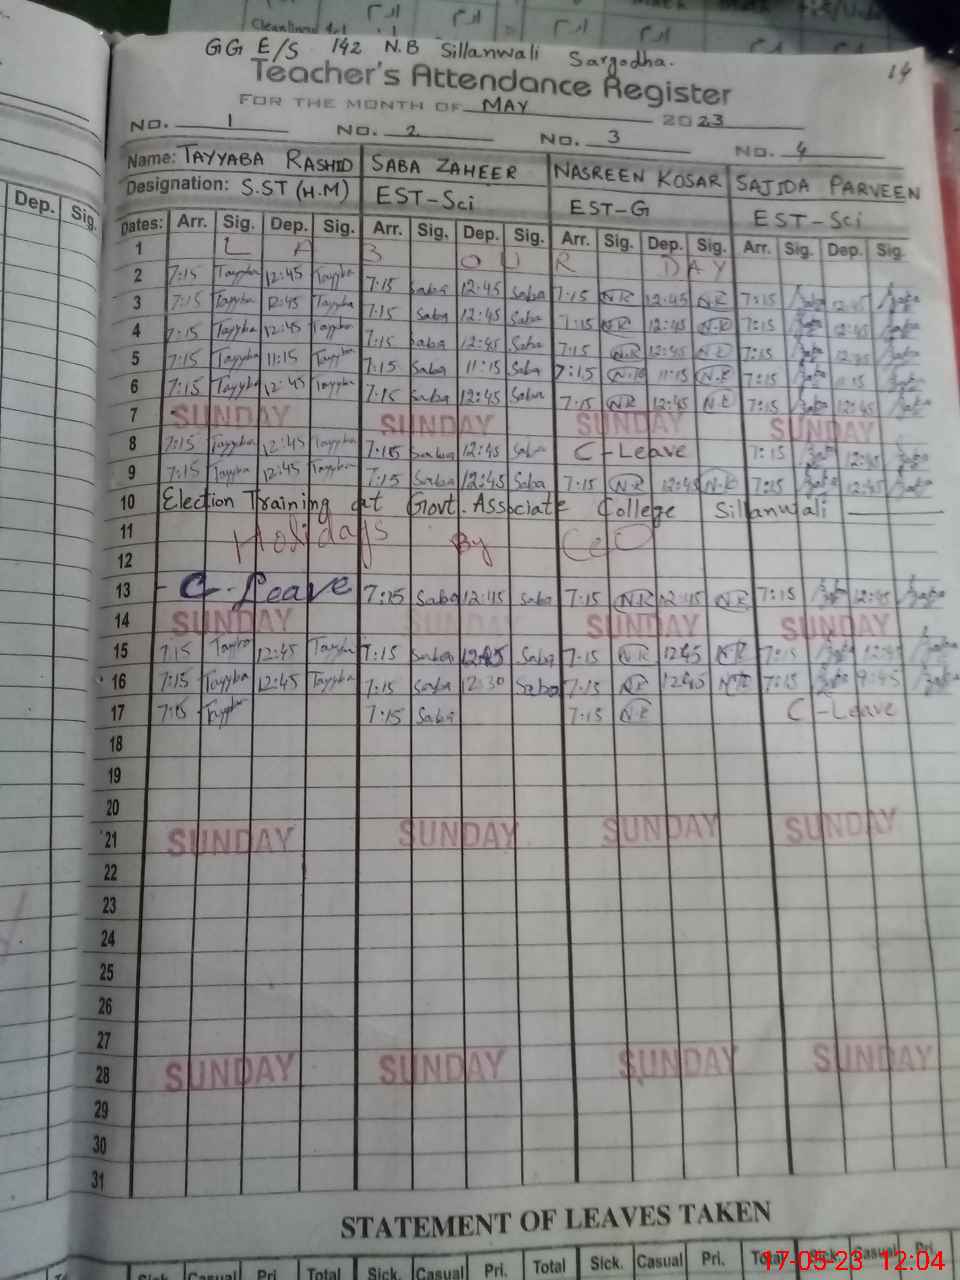 Cleanliness
GG E/S 142 N.B Sillanwali Sargodha.
14
Teacher's Attendance Register
FOR THE MONTH OF MAY 2023
No. 1 No. 2 No. 3 No. 4
Name: TAYYABA RASHID SABA ZAHEER NASREEN KOSAR SAJIDA PARVEEN
Designation: S.ST (H.M) EST-Sci EST-G EST-Sci
Dep. Sig.
Dates: Arr. Sig. Dep. Sig. Arr. Sig. Dep. Sig. Arr. Sig. Dep. Sig. Arr. Sig. Dep. Sig.
1 L A B O U R D A Y
2 7:15 Tayyba 12:45 Tayyba 7:15 Saba 12:45 Saba 7:15 NR 12:45 NR 7:15 12:45
3 7:15 Tayyba 12:45 Tayyba 7:15 Saba 12:45 Saba 7:15 NR 12:45 N.R 7:15 12:45
4 7:15 Tayyba 12:45 Tayyba 7:15 Saba 12:45 Saba 7:15 N.R 12:45 NR 7:15 12:45
5 7:15 Tayyba 11:15 Tayyba 7:15 Saba 11:15 Saba 7:15 N.R 11:15 N.R 7:15 11:15
6 7:15 Tayyba 12:45 Tayyba 7:15 Saba 12:45 Saba 7:15 NR 12:45 N.R 7:15 12:45
7 SUNDAY SUNDAY SUNDAY SUNDAY
8 7:15 Tayyba 12:45 Tayyba 7:15 Saba 12:45 Saba C-Leave 7:15 12:45
9 7:15 Tayyba 12:45 Tayyba 7:15 Saba 12:45 Saba 7:15 NR 12:45 N.R 7:15 12:45
10 Election Training at Govt. Associate College Sillanwali
11 Holidays By CeO
12
13 - C-Leave 7:15 Saba 12:45 Saba 7:15 NR 12:45 NR 7:15 12:45
14 SUNDAY SUNDAY SUNDAY SUNDAY
15 7:15 Tayyba 12:45 Tayyba 7:15 Saba 12:45 Saba 7:15 NR 12:45 NR 7:15 12:45
16 7:15 Tayyba 12:45 Tayyba 7:15 Saba 12:30 Saba 7:15 NR 12:45 NR 7:15 9:45
17 7:15 Tayyba 7:15 Saba 7:15 N.R C-Leave
18
19
20
21 SUNDAY SUNDAY SUNDAY SUNDAY
22
23
24
25
26
27
28 SUNDAY SUNDAY SUNDAY SUNDAY
29
30
31
STATEMENT OF LEAVES TAKEN
Sick. Casual Pri. Total Sick. Casual Pri. Total Sick. Casual Pri. Total Sick. Casual Pri.
17-05-23 12:04